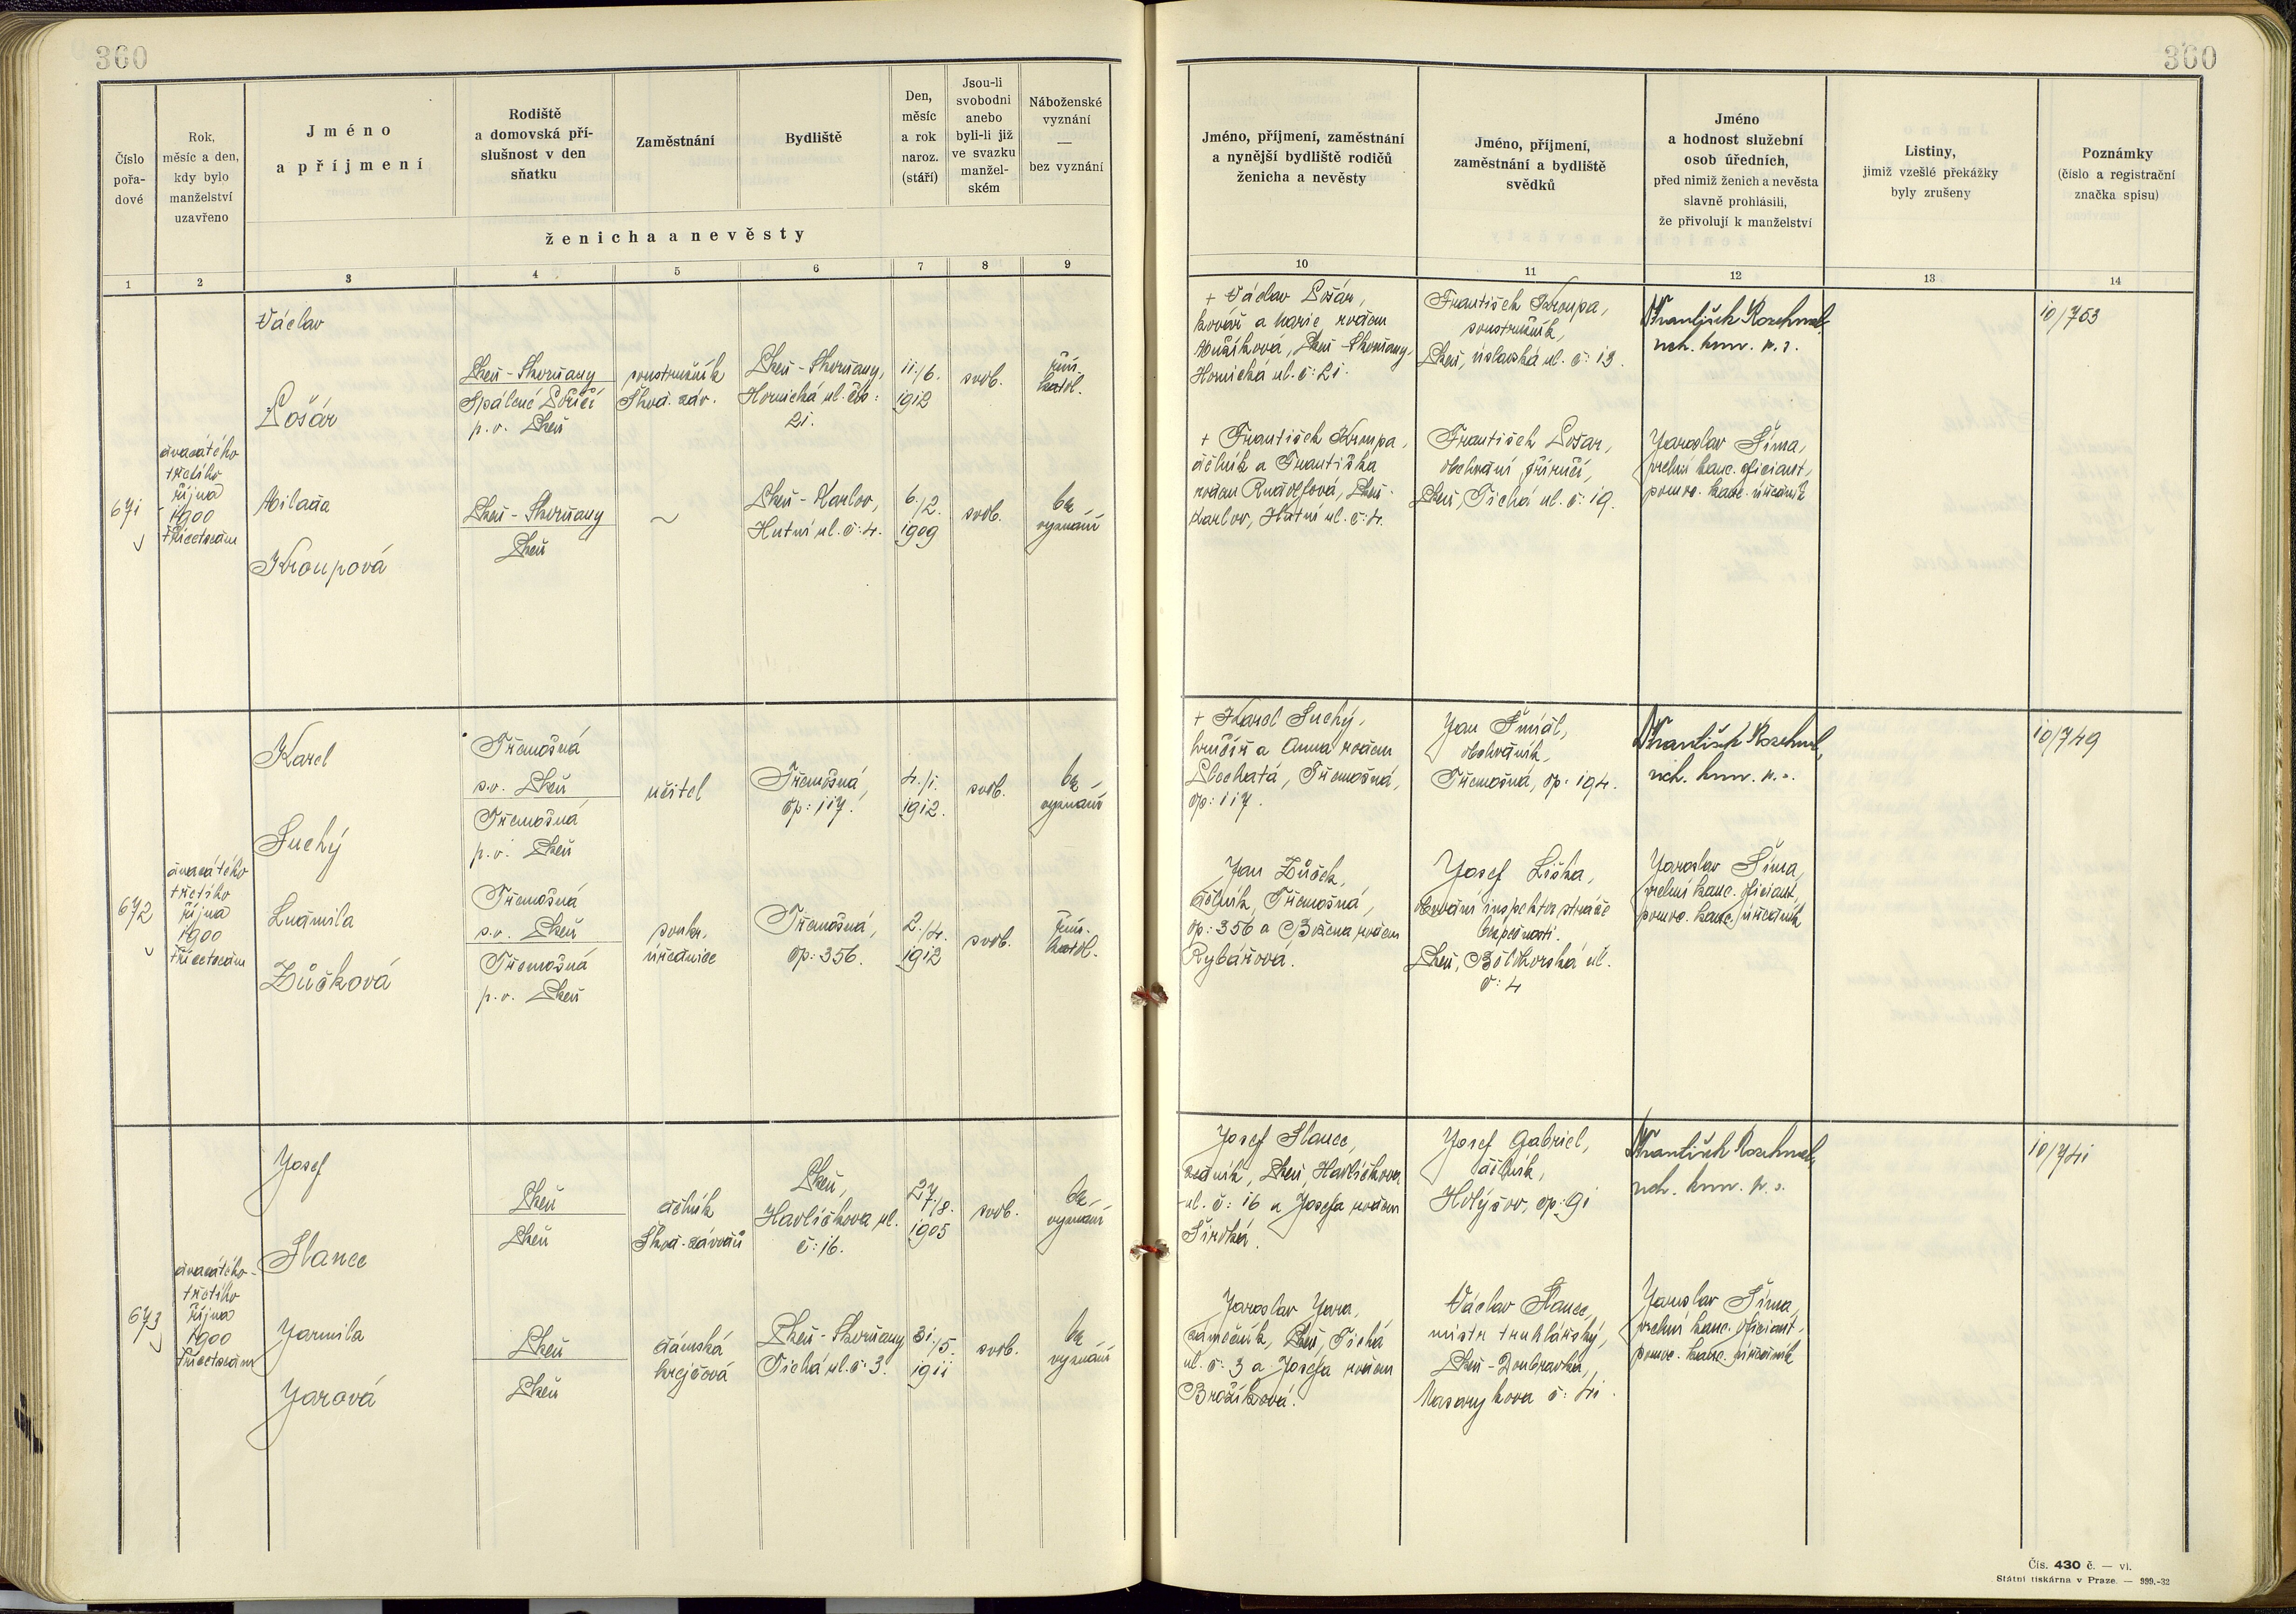 360
360
Číslo
pořa-
dové
Rok,
měsíc a den,
kdy bylo
manželství
uzavřeno
Jméno
a příjmení
Rodiště
a domovská pří-
slušnost v den
sňatku
Zaměstnání
Bydliště
Den,
měsíc
a rok
naroz.
(stáří)
Jsou-li
svobodni
anebo
byli-li již
ve svazku
manžel-
ském
Náboženské
vyznání
—
bez vyznání
ženicha a nevěsty
Jméno, příjmení, zaměstnání
a nynější bydliště rodičů
ženicha a nevěsty
Jméno, příjmení,
zaměstnání a bydliště
svědků
Jméno
a hodnost služební
osob úředních,
před nimiž ženich a nevěsta
slavně prohlásili,
že přivolují k manželství
Listiny,
jimiž vzešlé překážky
byly zrušeny
Poznámky
(číslo a registrační
značka spisu)
1 2 3 4 5 6 7 8 9 10 11 12 13 14
671
dvacátého
třetího
října
1900
třicetsedm
Václav
Pošár
Milada
Kroupová
Plzeň-Skvrňany
Spálené Poříčí
p.o. Plzeň
Plzeň-Skvrňany
Plzeň
soustružník
Škod. záv.
~
Plzeň-Skvrňany,
Hornická ul. čís:
21.
Plzeň-Karlov,
Hutní ul. č: 4.
11./6.
1912
6./2.
1909
svob.
svob.
řím.
katol.
bez
vyznání
+ Václav Pošár,
kovář a Marie, rodem
Mužíková, Plzeň-Skvrňany,
Hornická ul. č: 21.
+ František Kroupa,
dělník a Františka
rodem Rudolfová, Plzeň-
Karlov, Hutní ul. č: 4.
František Kroupa,
soustružník,
Plzeň, úslavská ul. č: 13.
František Pošar,
obchodní příručí,
Plzeň, Tichá ul. č: 19.
František
Jaroslav Šíma,
vrchní kanc. oficiant,
pomoc. kanc. úředník
10/763
672
dvacátého
třetího
října
1900
třicetsedm
Karel
Suchý
Ludmila
Zůčková
Třemošná
s.o. Plzeň
Třemošná
p.o. Plzeň
Třemošná
s.o. Plzeň
Třemošná
p.o. Plzeň
učitel
soukr.
úřednice
Třemošná,
čp: 117.
Třemošná,
čp: 356.
4./1.
1912.
2./4.
1912
svob.
svob.
bez
vyznání
řím.
katol.
+ Karel Suchý,
hrnčíř a Anna rodem
Plochatá, Třemošná,
čp: 117.
Jan Zůček,
dělník, Třemošná,
čp: 356 a Božena rodem
Rybářová.
Jan Šmídl,
obchodník,
Třemošná, čp: 194.
Josef Liška,
obvodní inspektor stráže
bezpečnosti.
Plzeň, ul.
č: 4
František
Jaroslav Šíma,
vrchní kanc. oficiant,
pomoc. kanc. úředník
10/749
673
dvacátého-
třetího
října
1900
třicetsedm
Josef
Slanec
Jarmila
Jarová
Plzeň
Plzeň
Plzeň
Plzeň
dělník
Škod. závodů
dámská
krejčová
Plzeň,
Havlíčkova ul.
č: 16.
Plzeň-Skvrňany
Tichá ul. č: 3.
27./8.
1905
31./5.
1911
svob.
svob.
bez
vyznání
bez
vyznání
Josef Slanec,
zedník, Plzeň, Havlíčkova
ul. č: 16 a Josefa rodem
Široká.
Jaroslav Jara,
zámečník, Plzeň, Tichá
ul. č: 3 a Josefa rodem
Brožíková.
Josef Gabriel,
dělník,
Holýšov, čp: 91
Václav Slanec,
mistr truhlářský,
Plzeň-Doubravka,
Masarykova č: 41.
František
Jaroslav Šíma,
vrchní kanc. oficiant,
pomoc. kanc. úředník
10/741
Čís. 430 č. — vl.
Státní tiskárna v Praze. — 999.-32